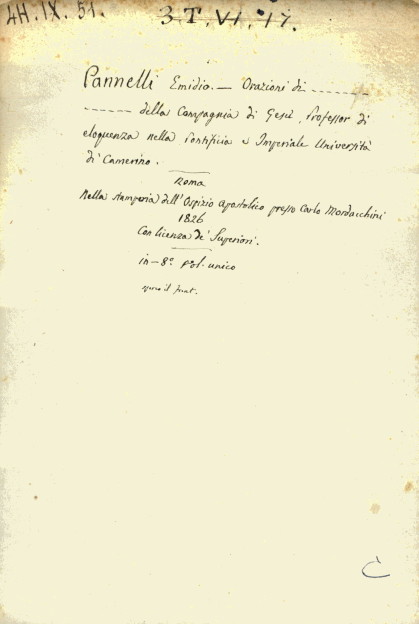 4H.IX.51. 3.T.VI.17.
Pannelli Emidio. — Orazioni di ----------
---------- della Compagnia di Gesù, Professor di
eloquenza nella Pontificia e Imperiale Università
di Camerino.
Roma
Nella stamperia dell'Ospizio Apostolico presso Carlo Mordacchini
1826
Con licenza de' Superiori.
in-8º vol. unico
C